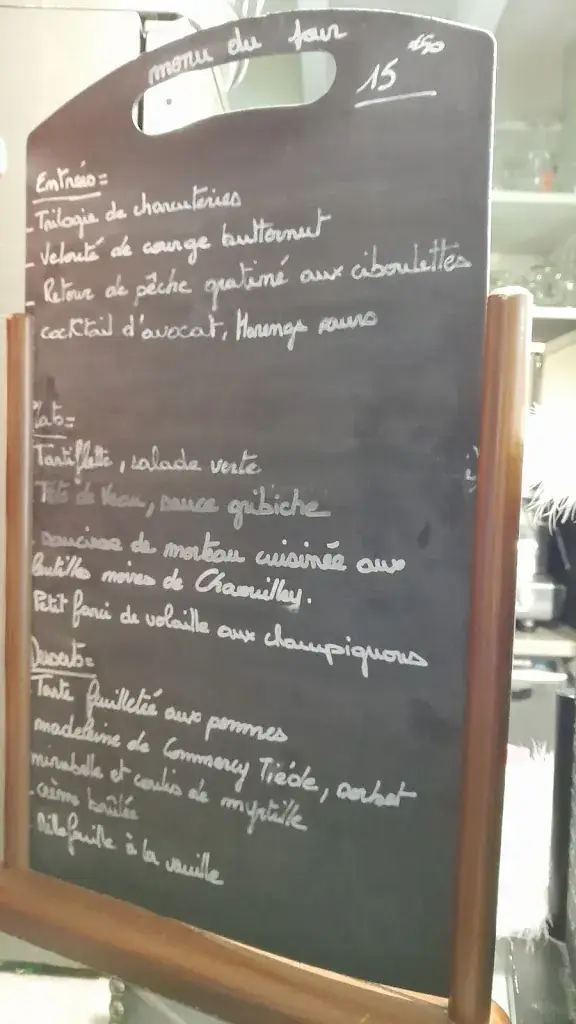 menu du jour
15 €50
Entrées =
- Trilogie de charcuteries
- Velouté de courge butternut
- Retour de pêche gratiné aux ciboulettes
cocktail d'avocat, Harengs
Plats =
Tartiflette, salade verte
Tête de Veau, sauce gribiche
- saucisse de morteau cuisinée aux
lentilles noires de
Petit farci de volaille aux champignons
Desserts =
- Tarte feuilletée aux pommes
madeleine de Commercy Tiède, sorbet
mirabelle et coulis de myrtille
- crème brûlée
- Millefeuille à la vanille